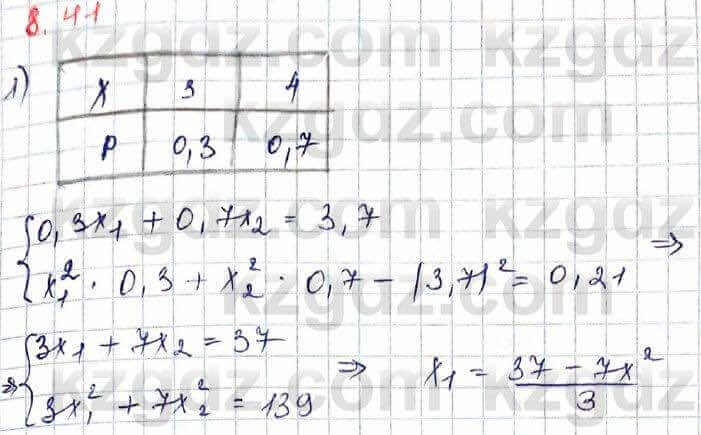 8.41
1)
X 3 4
P 0,3 0,7
{0,3x₁ + 0,7x₂ = 3,7
{x₁² · 0,3 + x₂² · 0,7 - (3,7)² = 0,21 ⇒
⇒ {3x₁ + 7x₂ = 37
{3x₁² + 7x₂² = 139 ⇒ x₁ = (37 - 7x²)/3
kzgdz.com kzgdz.com
kzgdz.com kzgdz.com
kzgdz.com kzgdz.com
kzgdz.com kzgdz.com